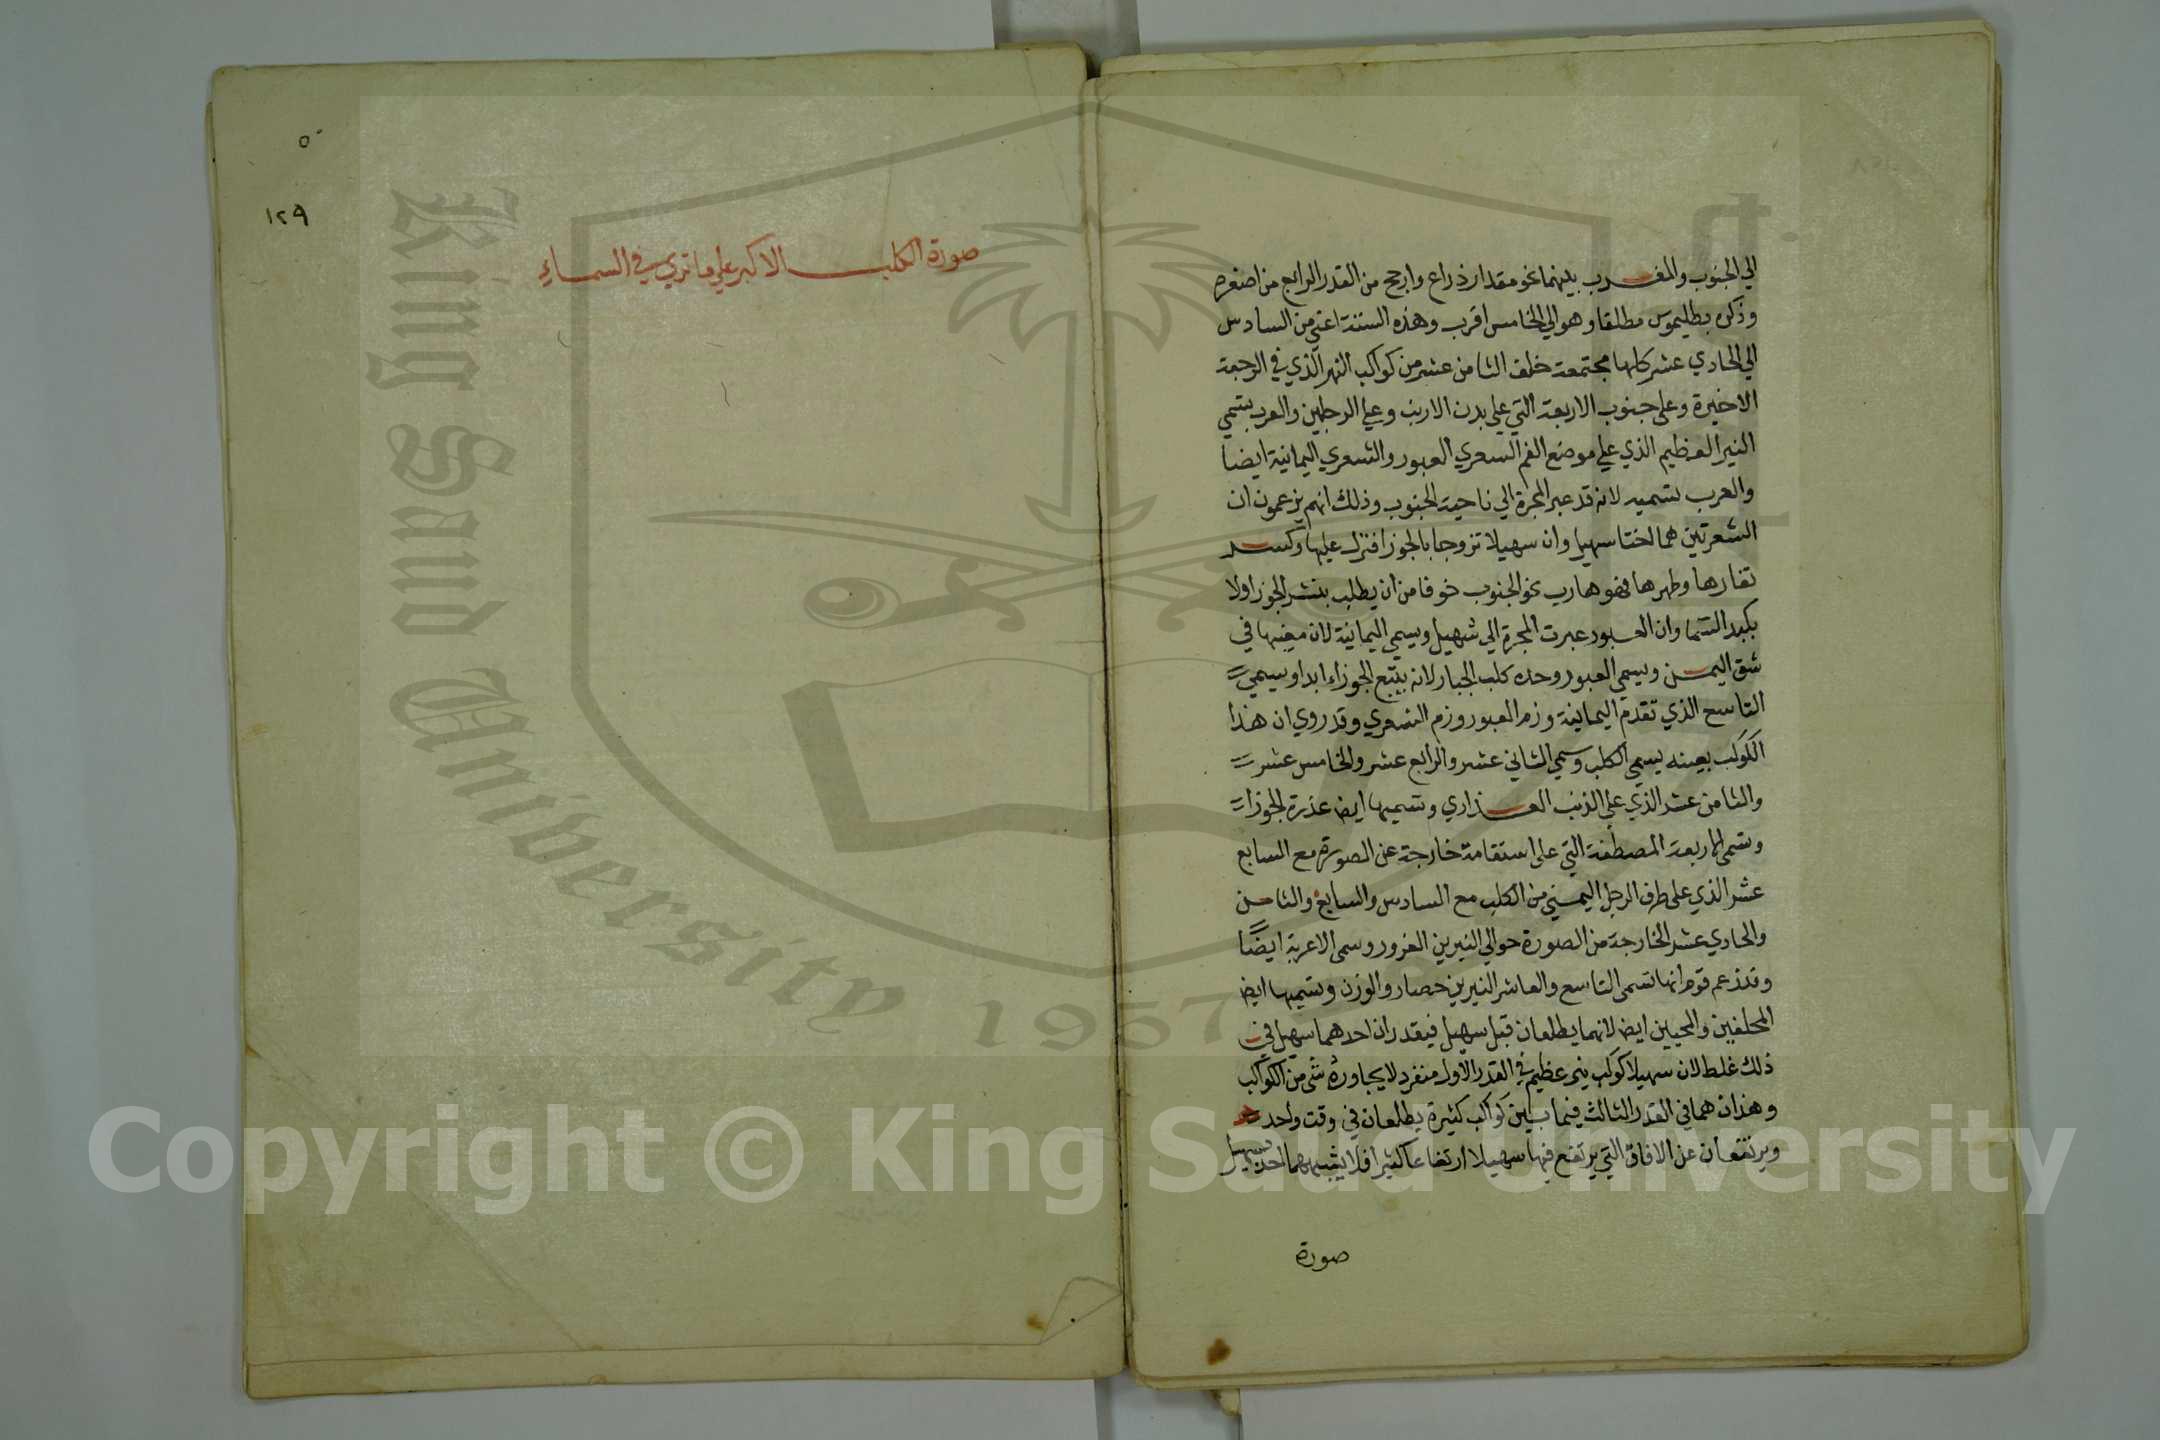 الي الجنوب والمغرب بينهما نحو مقدار ذراع وارجح من القدر الرابع من اصغره
وذكره بطليموس مطلقا وهو الي الخامس اقرب وهذه الستة اعني من السادس
الي الحادي عشر كلها مجتمعة خلف الثامن عشر من كواكب النهر الذي في الرجعة
الاخيرة وعلي جنوب الاربعة التي علي بدن الارنب وعلي الرجلين والعرب تسمي
النير العظيم الذي علي موضع الفم الشعري العبور والشعري اليمانية ايضا
والعرب تسميه لانه قد عبر المجرة الي ناحية الجنوب وذلك انهم يزعمون ان
الشعرتين هما اختا سهيل وان سهيلا تزوجا بالجوزا فنزل عليها وكسر
تفارها وظهرها فهو هارب نحو الجنوب خوفا من ان يطلب بنشر الجوزا ولا
بكبد السما وان العبور عبرت المجرة الي سهيل ويسمي اليمانية لان مغيبها في
شق اليمن ويسمي العبور وحده كلب الجبار لانه يتبع الجوزاء ابدا ويسمي
التاسع الذي تقدم اليمانية وزم العبور وزم الشعري وقد روي ان هذا
الكوكب بعينه يسمي الكلب وسمي الثاني عشر والرابع عشر والخامس عشر
والثامن عشر الذي علي الذنب العذاري وتسميها ايض عذرة الجوزا
وتسمي الاربعة المصطفة التي علي استقامة خارجة عن الصورة مع السابع
عشر الذي علي طرف الرجل اليمني من الكلب مع السادس والسابع والثامن
والحادي عشر الخارجة من الصورة حوالي النيرين الغرور وسمي الاعربة ايضًا
وقد زعم قوم انها تسمي التاسع والعاشر النيرين حضار والوزن وتسميها ايض
المحلفين والمحيين ايض لانهما يطلعان قبل سهيل فيقدر ان احدهما سهيل في
ذلك غلط لان سهيلا كوكب نير عظيم في القدر الاول منفرد لا يجاوره شي من الكواكب
وهذان هما في القدر الثالث فيما بين كواكب كثيرة يطلعان في وقت واحد
ويرتفعان عن الافاق التي يرتفع فيها سهيلا ارتفاعا كثيرا فلا يشبههما احد بسهيل
صورة
٥٠
١٢٩
صورة الكلب الاكبر علي ما تري في السماء
King Saud University
1957
Copyright © King Saud University